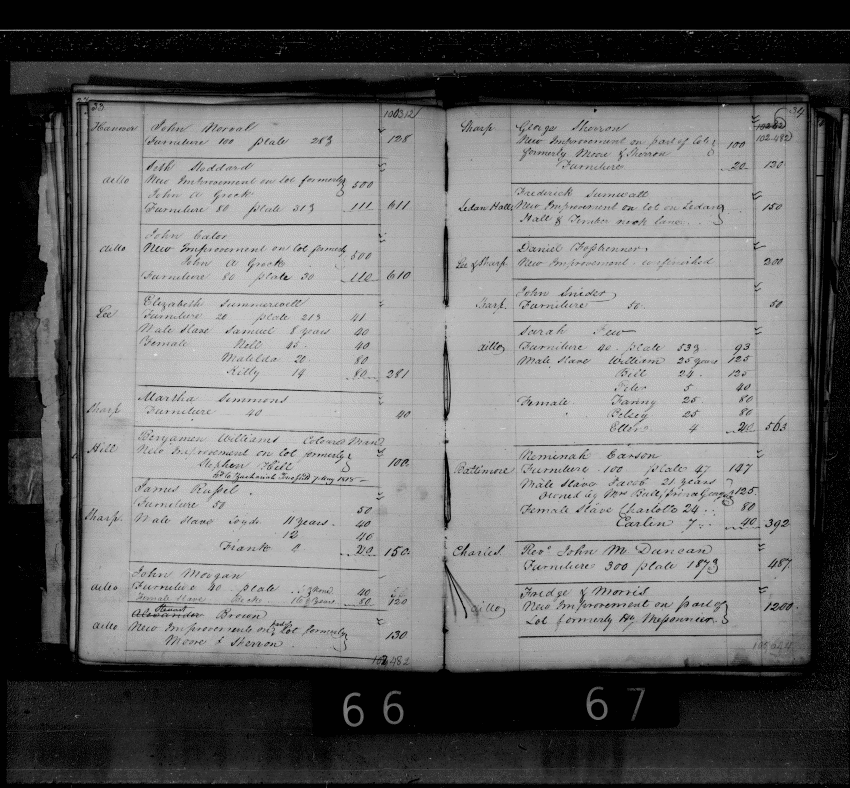 33
100312
Hanover John Norval
Furniture 100 plate 283 128
Seth Stoddard
ditto New Improvement on lot formerly 500
John A Grock
Furniture 80 plate 313 111 611
John Cator
ditto New Improvement on lot formerly 500
John A Grock
Furniture 80 plate 30 110 610
Elizabeth Summerwell
Lee Furniture 20 plate 213 41
Male Slave Samuel 8 years 40
Female Nell 45 40
Matilda 20 80
Killy 14 80 281
Martha Simmons
Sharp Furniture 40 40
Benjamin Williams Coloured Man
Hill New Improvement on lot formerly
Stephen Hill 100
James Russel
Furniture 50 50
Sharp Male Slave 11 years 40
12 40
Frank 8 20 150
John Morgan
ditto Furniture 40 plate 40
Female Slave 16 years 80 120
Stewart
Alexander Brown
ditto New Improvements on lot formerly 130
Moore & Sherron
102482
34
Sharp George Sherron 102482
New Improvement on part of lot 100
formerly Moore & Sherron
Furniture 20 120
Frederick Sumwalt
Ledan Hall New Improvement on lot on Ledan 150
Hall & lane
Daniel
Lee & Sharp New Improvement unfinished 200
John Snider
Sharp Furniture 50 50
Sarah
ditto Furniture 40 plate 533 93
Male Slave William 25 years 125
Bill 24 125
5 40
Female Fanny 25 80
Betsey 25 80
Ellen 4 20 563
Neminah Carson
Baltimore Furniture 100 plate 47 147
Male Slave Jacob 21 years
owned by Mrs 125
Female Slave Charlotte 24 80
7 40 392
Charles Revd John M. Duncan
Furniture 300 plate 1873 487
Fridge & Morris
ditto New Improvement on part of 1200
Lot formerly Hy Messonnier
66
67